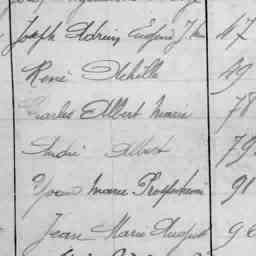 Joseph Adrien Eugène J. 47
René Achille 49
Charles Albert Marie 78
André Albert 79
Yves Marie 91
Jean Marie August 96